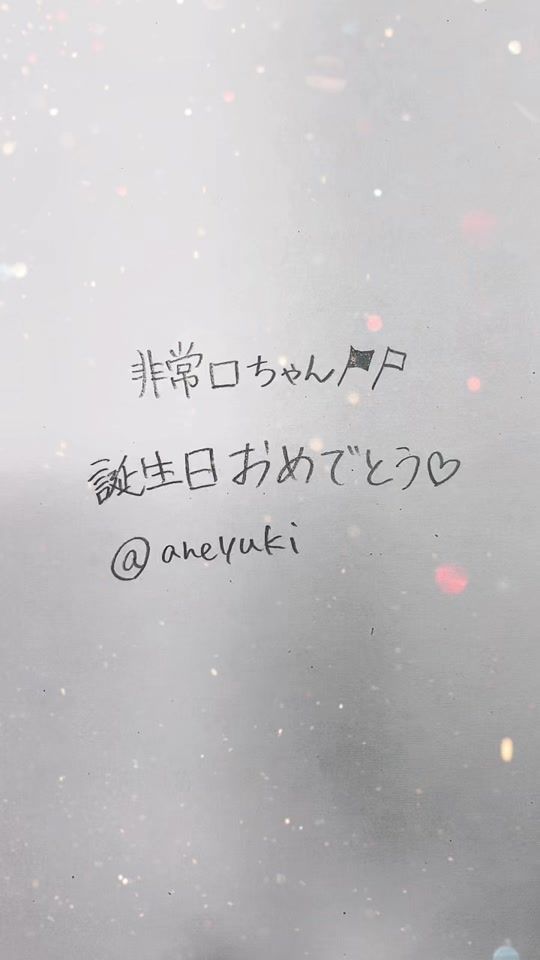 非常口ちゃん
誕生日おめでとう♡
@aneyuki